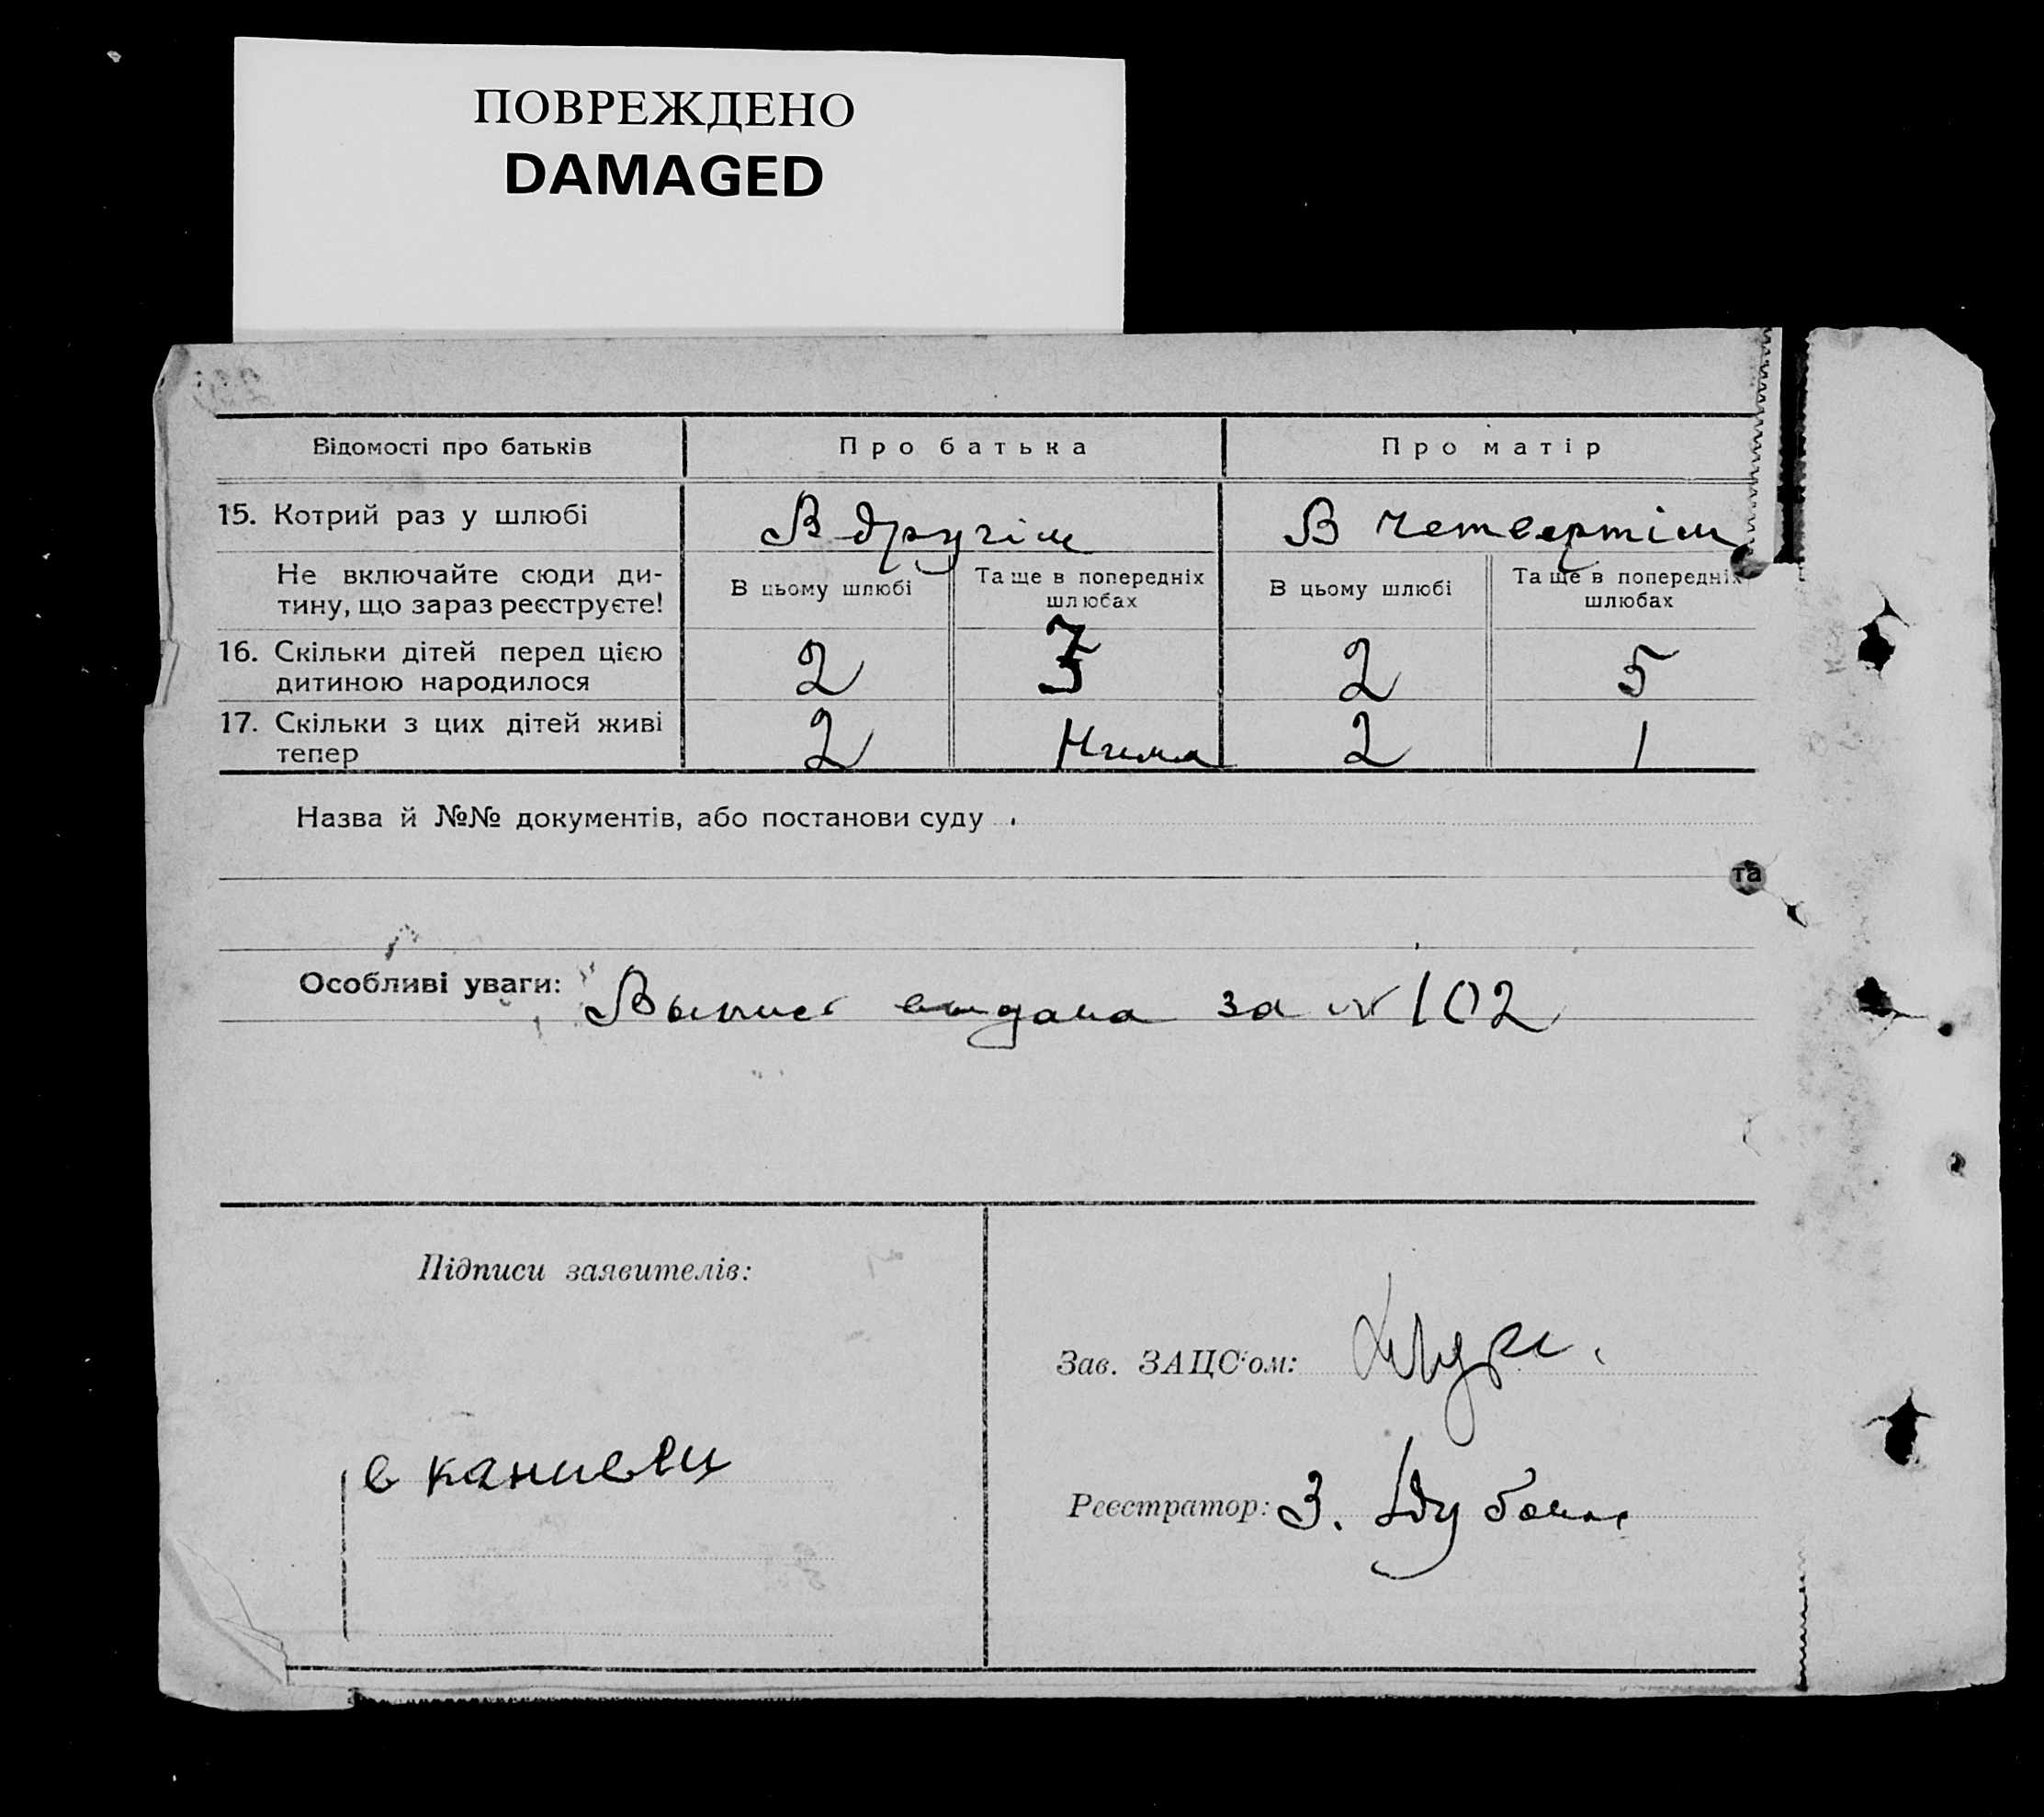 ПОВРЕЖДЕНО
DAMAGED
Відомості про батьків
Про батька
Про матір
15. Котрий раз у шлюбі
В другім
В четвертім
Не включайте сюди ди-
тину, що зараз реєструєте!
В цьому шлюбі
Та ще в попередніх
шлюбах
В цьому шлюбі
Та ще в попередніх
шлюбах
16. Скільки дітей перед цією
дитиною народилося
2
2
5
17. Скільки з цих дітей живі
тепер
2
Нима
2
1
Назва й №№ документів, або постанови суду
та
Особливі уваги: Выпис выдана за № 102
Підписи заявителів:
Зав. ЗАЦС'ом:
в каниввц
Реєстратор: З.